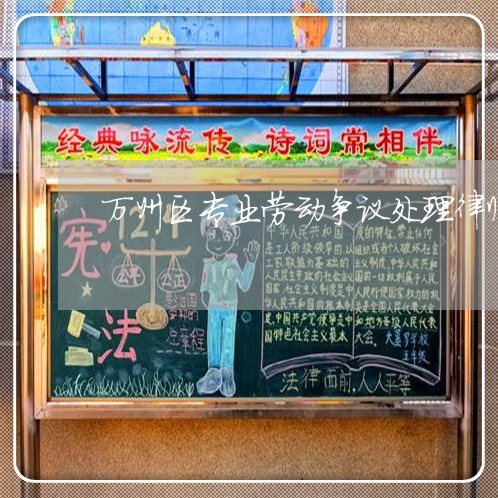 经典咏流传 诗词常相伴
万州区专业劳动争议处理律
宪法
12.4
公平
公正
总章程
中华人民共和国
是工人阶级领导的,以
工农联盟为基础的
人民民主专政的社会主义
国家,社会主义制度是中
华人民共和国的根本制
度,中国共产党领导是中
国特色社会主义最本
质的特征,禁止任何
组织或者个人破坏社会
主义制度,中华人民共和
国的一切权利属于人民,
人民行使国家权力的机
关是全国人民代表大会
和地方各级人民代表
大会.
学校
五年级
法律面前,人人平等